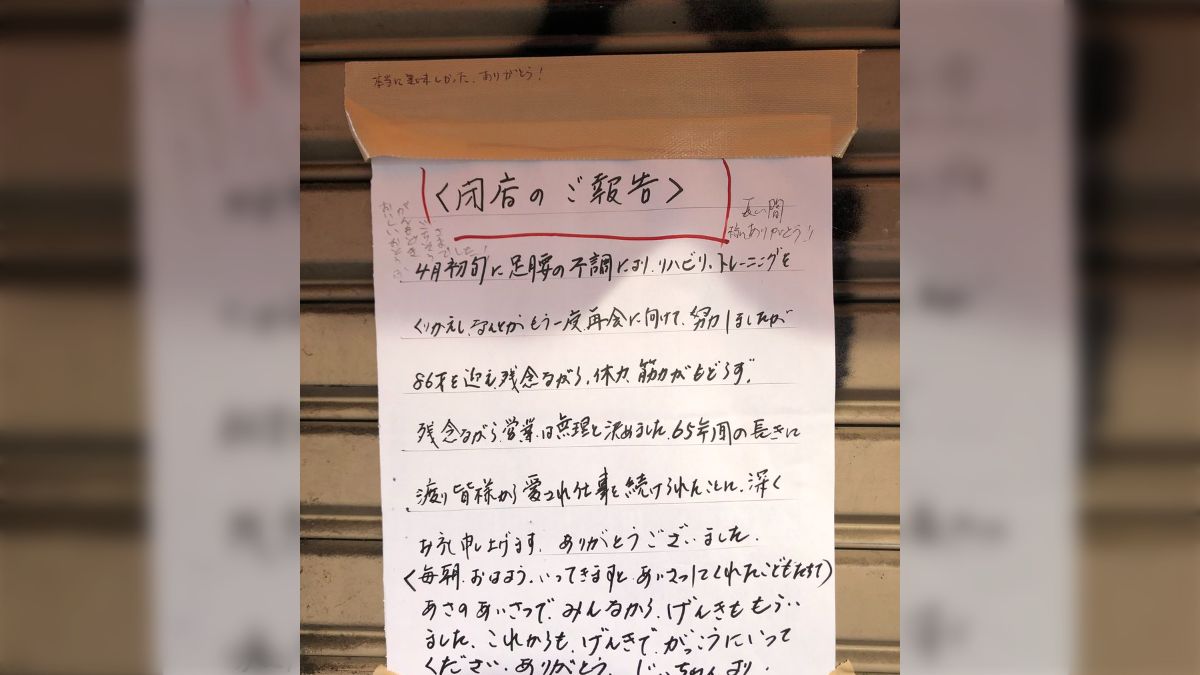 本当に美味しかった、ありがとう!
〈閉店のご報告〉
長い間
ありがとう!!
がんもどき
おいしいおとうふ
ごちそう
さまでした!
4月初旬に足腰の不調により、リハビリ、トレーニングを
くりかえし、なんとか、もう一度、再会に向けて、努力しましたが
86才を迎え、残念ながら、体力、筋力がもどらず。
残念ながら、営業は無理と決めました、65年間の長きに
渡り皆様から愛され仕事を続けられたことに、深く
お礼申し上げます、ありがとうございました、
(毎朝、おはよう、いってきますと、あいさつしてくれたこどもたちへ)
あさのあいさつで、みんなから、げんきをもらい
ました、これからも、げんきで、がっこうにいって
ください、ありがとう、じいちゃんより、